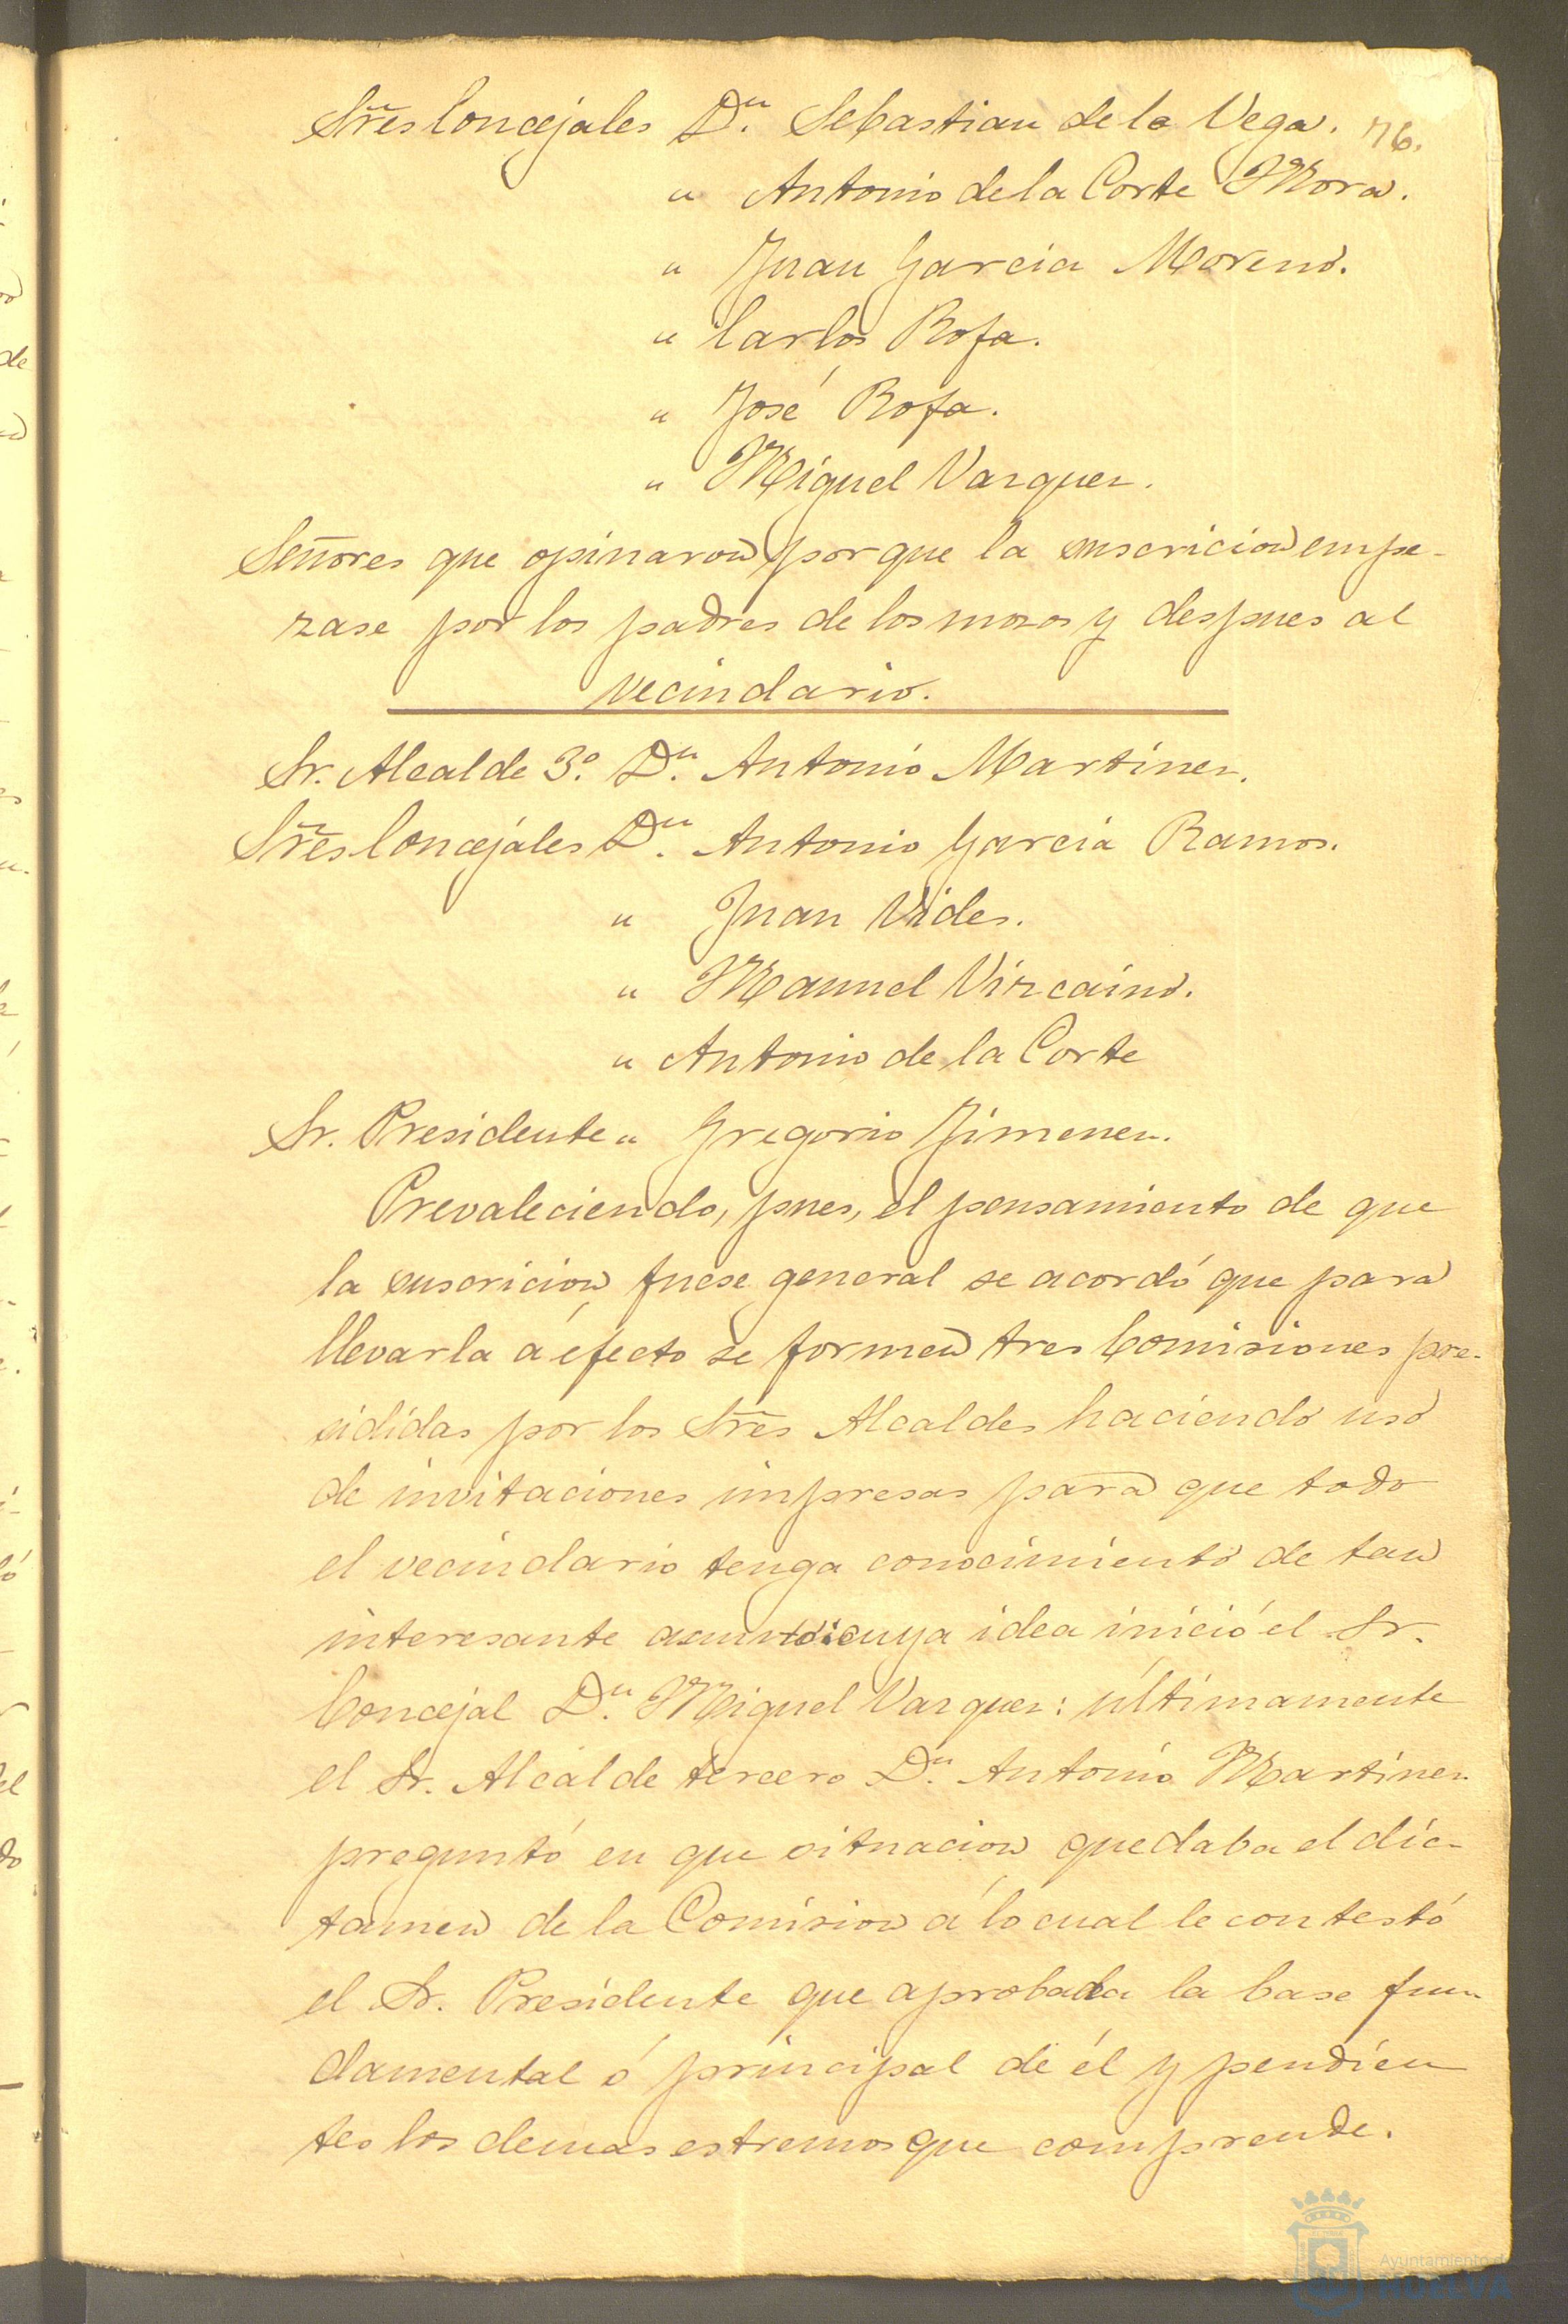 Sres Concejales Dn. Sebastian de la Vega. 76.
" Antonio de la Corte Mora.
" Juan Garcia Moreno.
" Carlos Rofa.
" José Rofa.
" Miguel Vazquez.
Señores que opinaron porque la suscricion empe-
zase por los padres de los mozos y despues al
vecindario.
Sr. Alcalde 3º. Dn. Antonio Martinez.
Sres Concejales Dn. Antonio Garcia Ramos.
" Juan Vides.
" Manuel Vizcaino.
" Antonio de la Corte
Sr. Presidente " Gregorio Jimenez.
Prevaleciendo, pues, el pensamiento de que
la suscricion fuese general se acordó que para
llevarla á efecto se formen tres Comisiones pre-
sididas por los Sres Alcaldes haciendo uso
de invitaciones impresas para que todo
el vecindario tenga conocimiento de tan
interesante asunto: cuya idea inició el Sr.
Concejal Dn. Miguel Vazquez: últimamente
el Sr. Alcalde tercero Dn. Antonio Martinez
preguntó en que situacion quedaba el dic-
tamen de la Comision á lo cual le contestó
el Sr. Presidente que aprobada la base fun-
damental ó principal de él y pendien
tes los demas estremos que comprende.
Ayuntamiento de
HUELVA